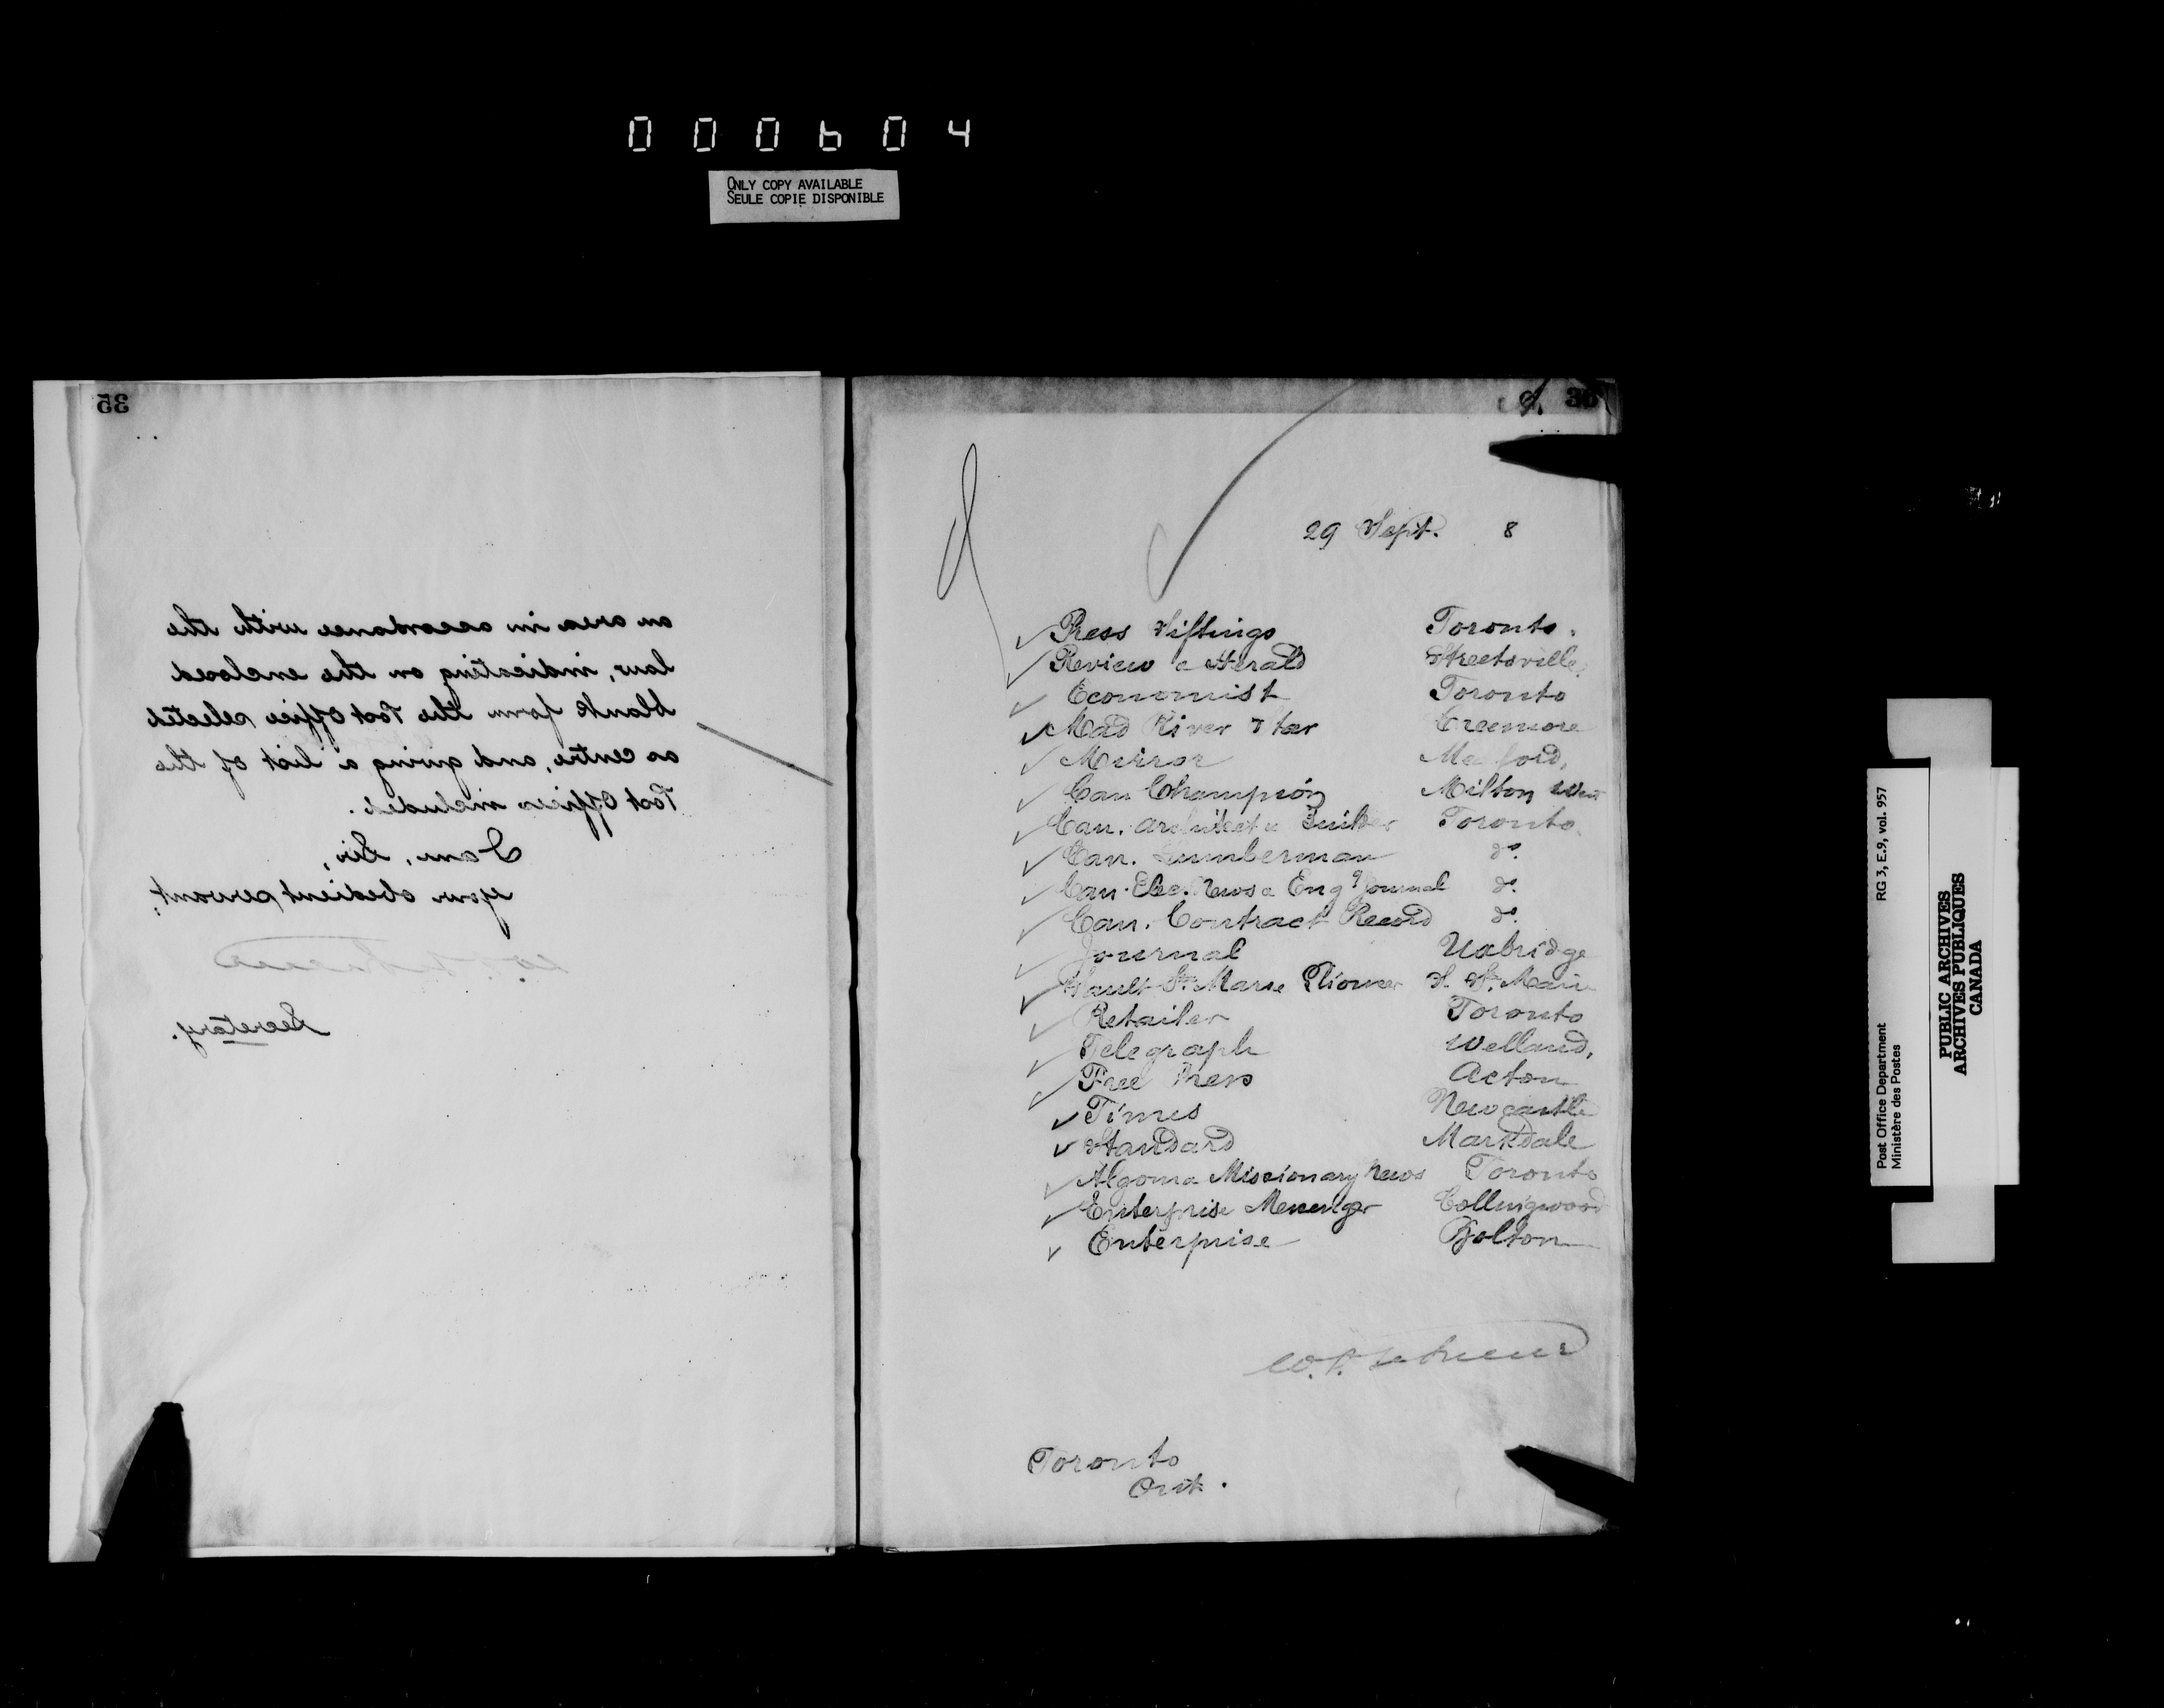 000604
ONLY COPY AVAILABLE
SEULE COPIE DISPONIBLE
35
an area in accordance with the
law, indicating on the enclosed
blank form the Post Office selected
as centre, and giving a list of the
Post Offices included.
I am, Sir,
your obedient servant,
Secretary.
36
29 Sept. 8
Press Siftings Toronto.
Review & Herald Streetsville,
Economist Toronto
Mad River Star Creemore
Mirror Meaford,
Can Champion Milton West
Can. Architect & Builder Toronto.
Can. Lumberman do.
Can. Elec. News & Engg Journal do.
Can. Contract Record do.
Journal Uxbridge
Sault Ste Marie Pioneer S. Ste. Marie
Retailer Toronto
Telegraph Welland,
Free Press Acton
Times Newcastle
Standard Markdale
Algoma Missionary News Toronto
Enterprise Messenger Collingwood
Enterprise Bolton
Toronto
Ont.
Post Office Department RG 3, E.9, vol. 957
Ministère des Postes
PUBLIC ARCHIVES
ARCHIVES PUBLIQUES
CANADA